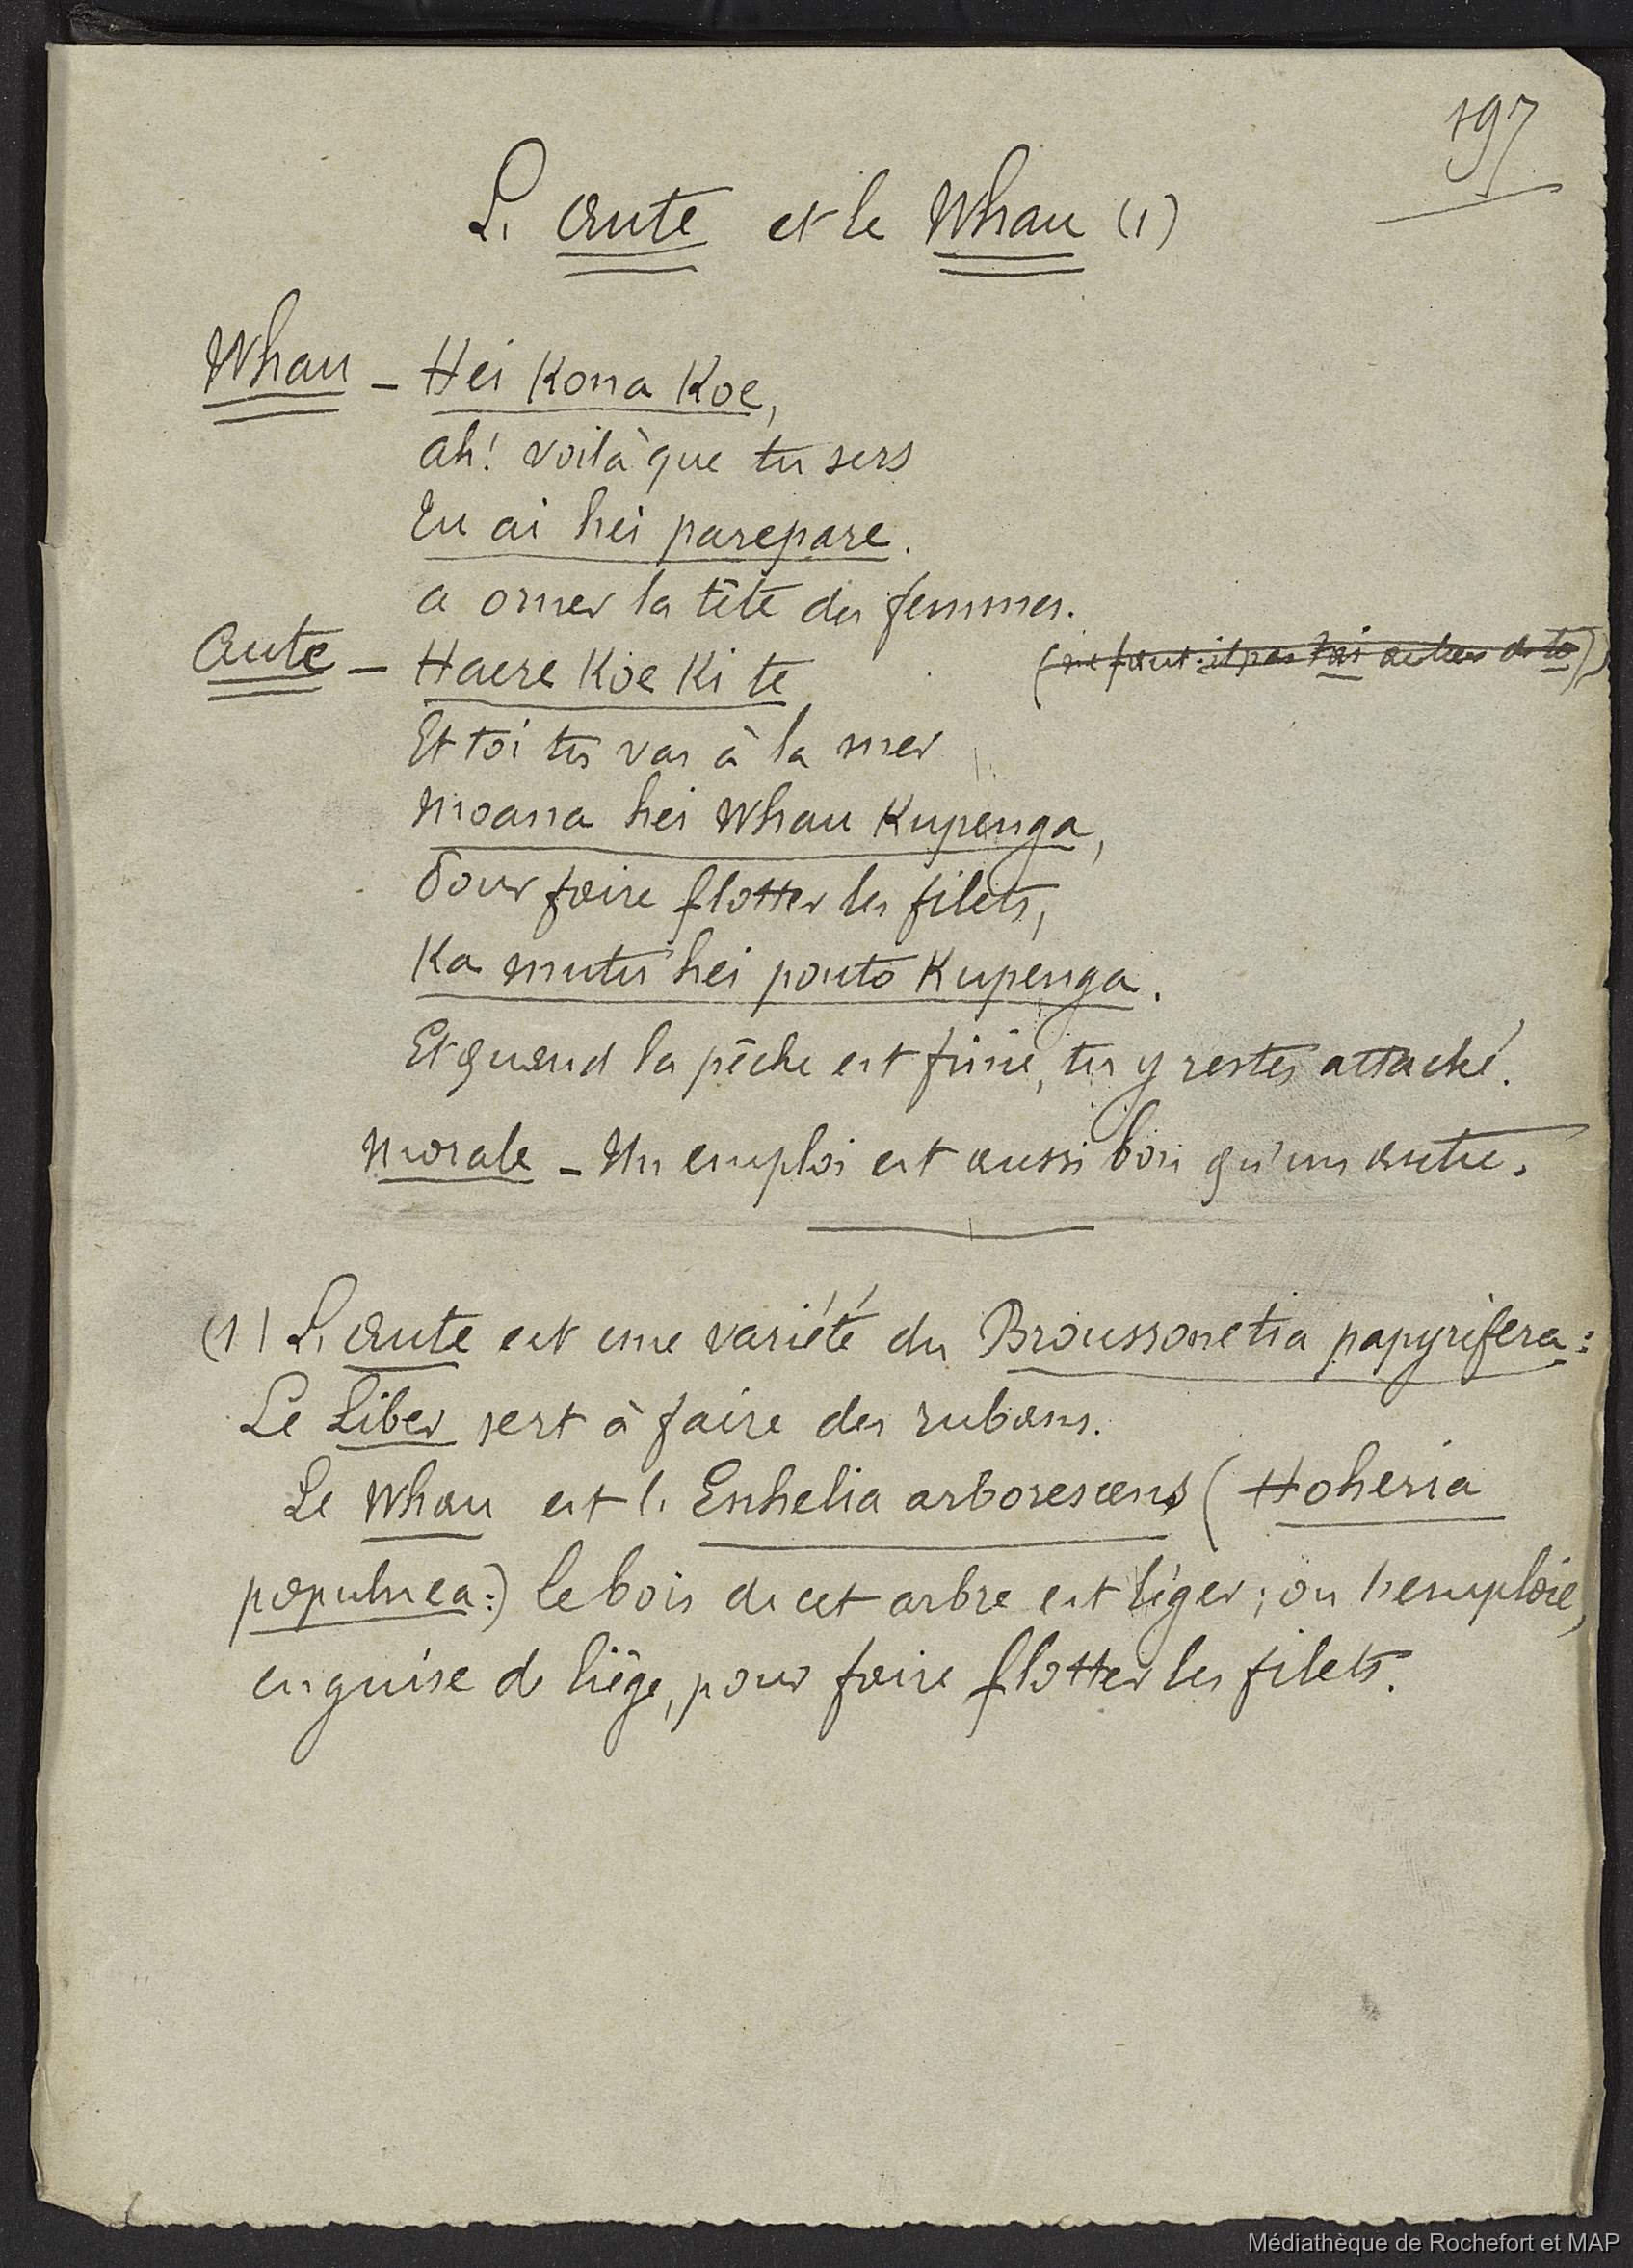 197
L'aute et le Whau (1)
Whau – Hei Kona Koe,
ah! voilà que tu sers
Tu ai hei parepare.
a orner la tête des femmes.
Aute – Haere Koe Ki te (ne faut-il pas tai au lieu de te)
Et toi tu vas à la mer
moana hei whau Kupenga,
Pour faire flotter les filets,
Ka mutu hei pouto Kupenga.
Et quand la pêche est finie, tu y restes attaché.
Morale – Un emploi est aussi bon qu'un autre.
(1) L'aute est une variété du Broussonetia papyrifera:
Le Liber sert à faire des rubans.
Le whau est l'Enhelia arborescens (Hoheria
populnea:) le bois de cet arbre est léger; on l'emploie,
en guise de liège, pour faire flotter les filets.
Médiathèque de Rochefort et MAP